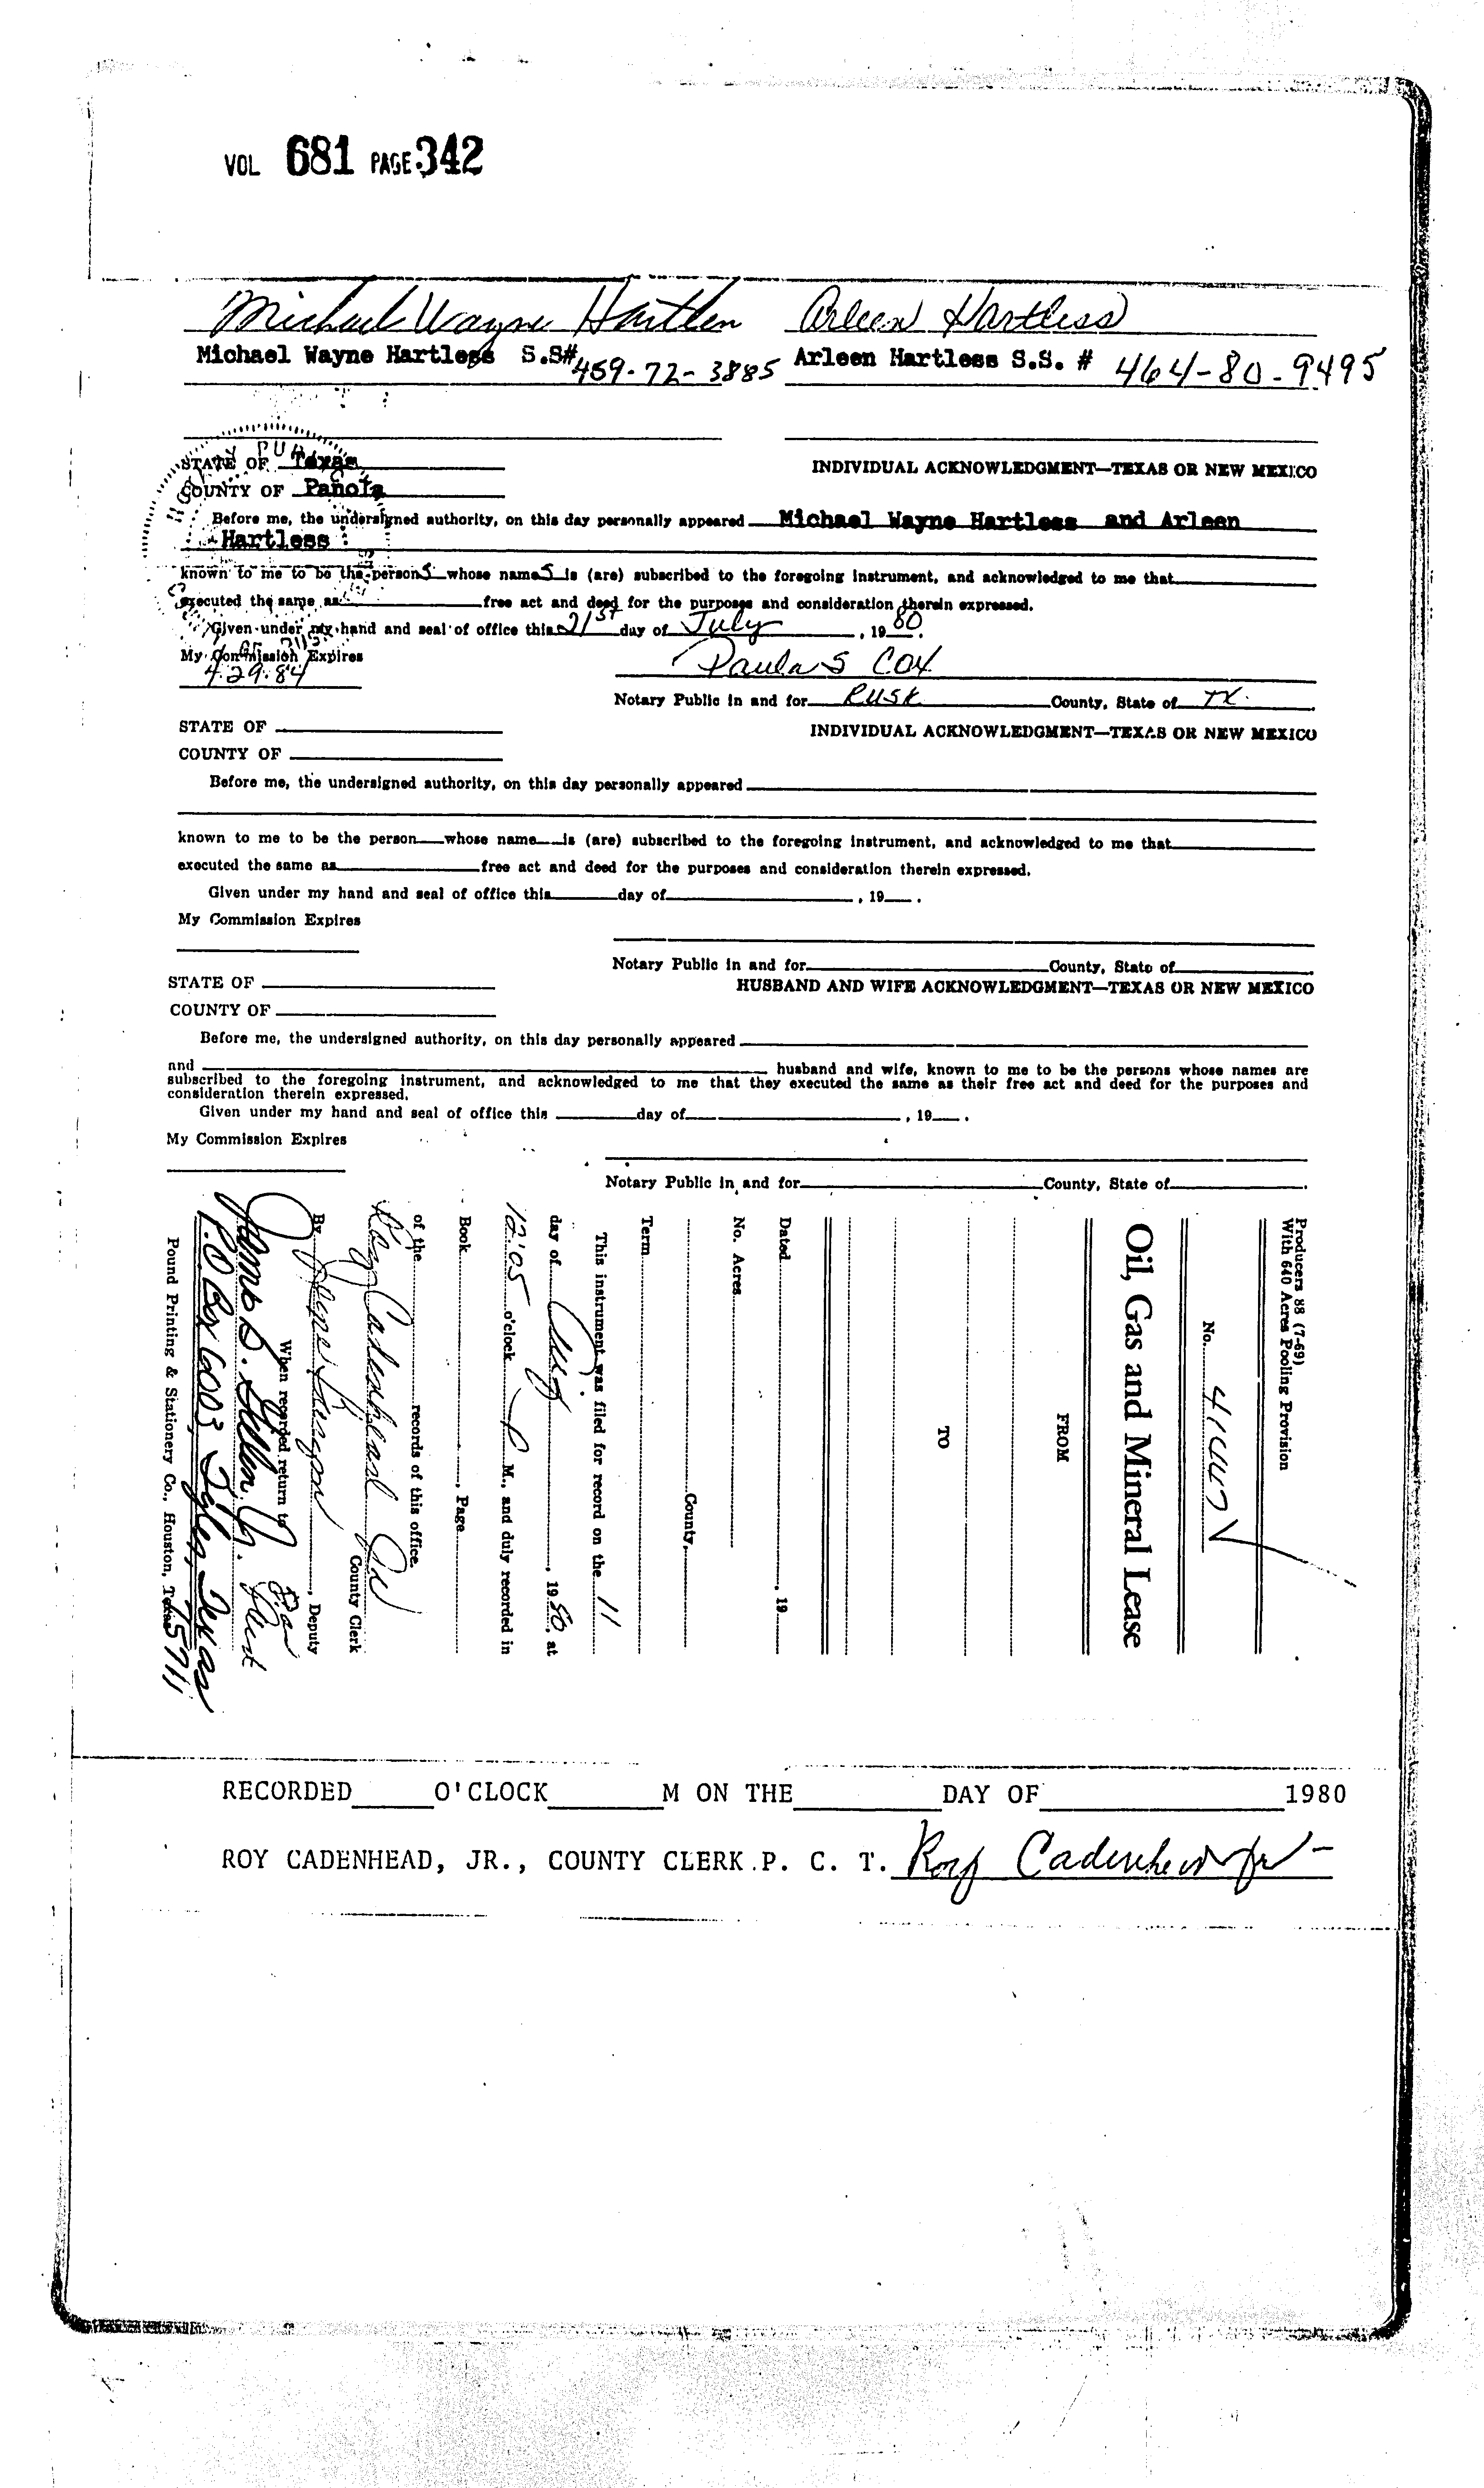 VOL 681 PAGE 342
Michael Wayne Hartless Arleen Hartless
Michael Wayne Hartless S.S# 459-72-3885 Arleen Hartless S.S. # 464-80-9495
STATE OF Texas INDIVIDUAL ACKNOWLEDGMENT—TEXAS OR NEW MEXICO
COUNTY OF Panola
Before me, the undersigned authority, on this day personally appeared Michael Wayne Hartless and Arleen
Hartless
known to me to be the persons whose names is (are) subscribed to the foregoing instrument, and acknowledged to me that
executed the same as free act and deed for the purposes and consideration therein expressed.
Given under my hand and seal of office this 21st day of July, 1980.
My Commission Expires
4.29.84 Paula S Cox
Notary Public in and for RUSK County, State of TX.
STATE OF INDIVIDUAL ACKNOWLEDGMENT—TEXAS OR NEW MEXICO
COUNTY OF
Before me, the undersigned authority, on this day personally appeared
known to me to be the person whose name is (are) subscribed to the foregoing instrument, and acknowledged to me that
executed the same as free act and deed for the purposes and consideration therein expressed.
Given under my hand and seal of office this day of , 19 .
My Commission Expires
Notary Public in and for County, State of
STATE OF HUSBAND AND WIFE ACKNOWLEDGMENT—TEXAS OR NEW MEXICO
COUNTY OF
Before me, the undersigned authority, on this day personally appeared
and husband and wife, known to me to be the persons whose names are
subscribed to the foregoing instrument, and acknowledged to me that they executed the same as their free act and deed for the purposes and
consideration therein expressed.
Given under my hand and seal of office this day of , 19 .
My Commission Expires
Notary Public in and for County, State of
Producers 88 (7-69)
With 640 Acres Pooling Provision
No.
Oil, Gas and Mineral Lease
FROM
TO
Dated , 19
No. Acres
County,
Term
This instrument was filed for record on the 11
day of Aug , 1980, at
12:05 o'clock P M., and duly recorded in
Book , Page
of the records of this office.
Roy Cadenhead Jr
County Clerk
By , Deputy
When recorded return to
James D.
P.O Box 6003, Tyler, Texas
75711
Pound Printing & Stationery Co., Houston, Texas
RECORDED O'CLOCK M ON THE DAY OF 1980
ROY CADENHEAD, JR., COUNTY CLERK P. C. T. Roy Cadenhead Jr